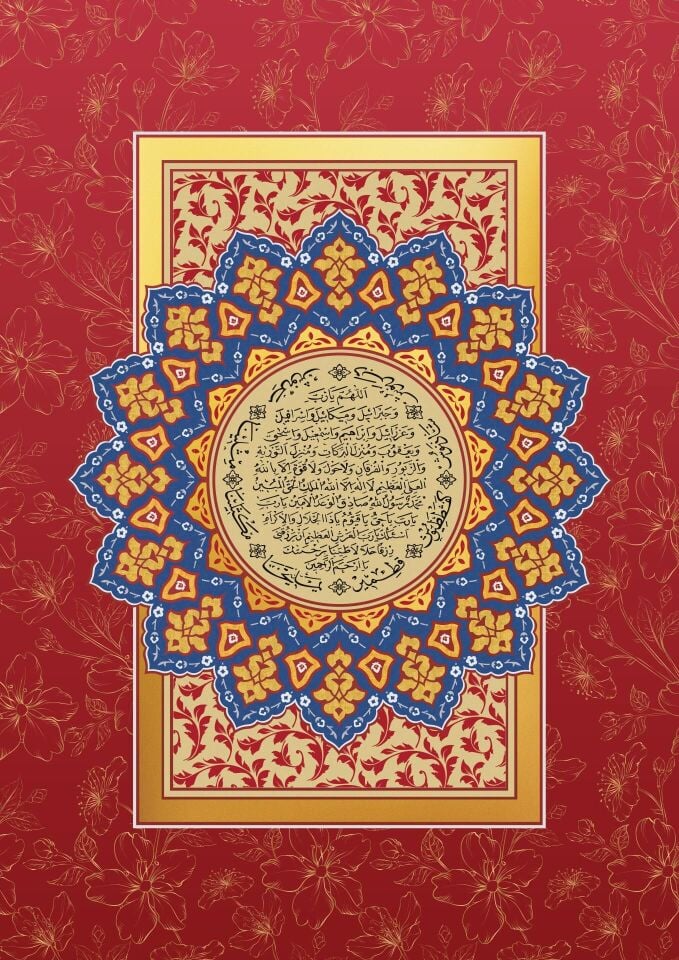 اللهم يا رب
وجبرائيل وميكائيل واسرافيل
وعزرائيل وابراهيم واسمعيل واسحق
ويعقوب ومنزل البركات ومنزل التورية
والزبور والفرقان ولا حول ولا قوة الا بالله
العلي العظيم لا اله الا الله الملك الحق المبين
محمد رسول الله صادق الوعد الامين يا رب
يا رب يا حي يا قيوم يا ذا الجلال والاكرام
اسئلك يا رب العرش العظيم ان ترزقني
رزقا حلالا طيبا برحمتك
يا ارحم الراحمين
يمليخا
مكسلينا
مثلينا
قطمير